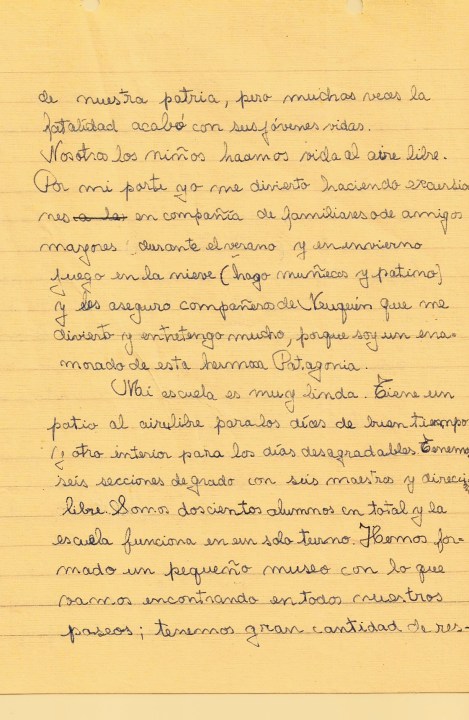 de nuestra patria, pero muchas veces la
fatalidad acabó con sus jóvenes vidas.
Nosotros los niños hacemos vida al aire libre.
Por mi parte yo me divierto haciendo excursio
nes a la en compañía de familiares o de amigos
mayores durante el verano y en invierno
juego en la nieve (hago muñecos y patino)
y les aseguro compañeros de Neuquén que me
divierto y entretengo mucho, porque soy un ena-
morado de esta hermosa Patagonia.
Mi escuela es muy linda. Tiene un
patio al aire libre para los días de buen tiempo
y otro interior para los días desagradables. Tenemos
seis secciones de grado con seis maestros y direcc
libre. Somos doscientos alumnos en total y la
escuela funciona en un solo turno. Hemos for-
mado un pequeño museo con lo que
vamos encontrando en todos nuestros
paseos; tenemos gran cantidad de res-